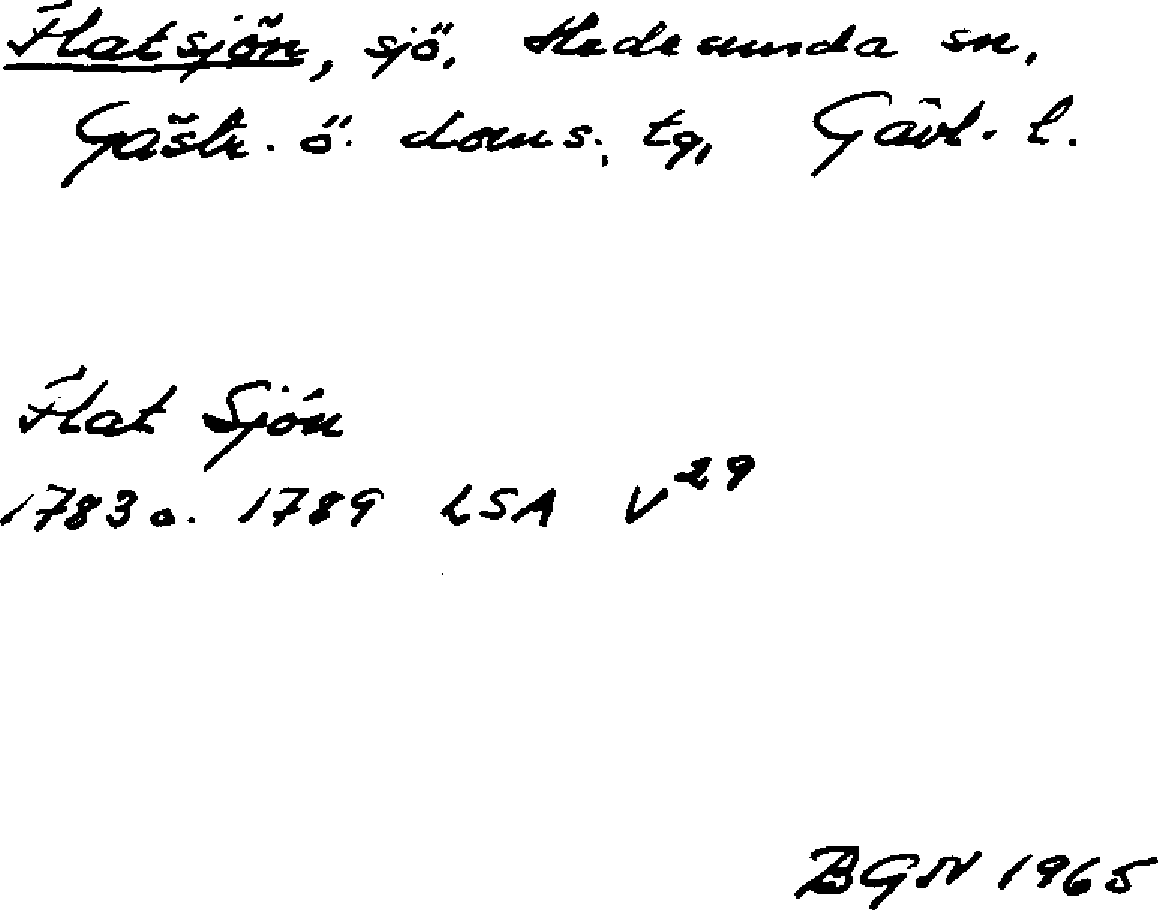 Flatsjön, sjö, Hedesunda sn,
Gästr. ö. doms. tg, Gävl. l.
Flat Sjön
1783 o. 1789 LSA V29
BGN 1965